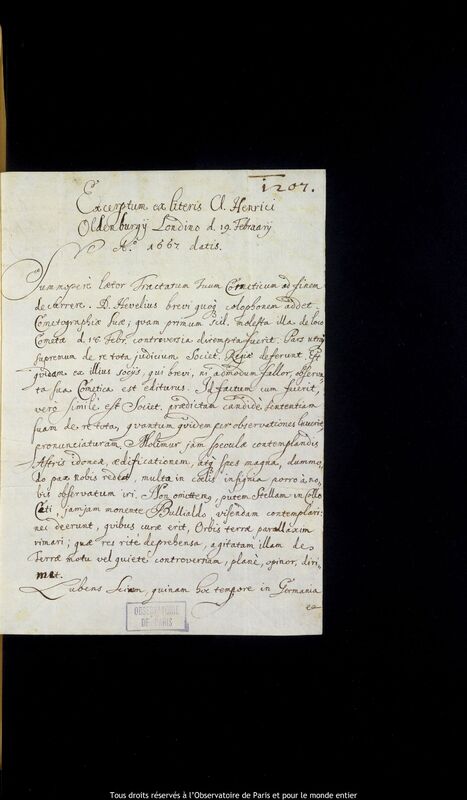 1207.
Excerptum ex literis Cl. Henrici
Oldemburgÿ Londino d. 19 Februarÿ
Aº. 1667 datis.
Summopere lætor Tractatum Tuum Cometicum ad finem
decurrere. D. Hevelius brevi quoq colophonem addet
Cometographiæ suæ, quam primum scil. molesta illa de loco
Cometæ d. 18 Febr. controversia dirempta fuerit. Pars utraq
supremum de re tota judicium Societ. Regiæ deferunt. Est
quidam ex illius socijs, qui brevi, ni admodum fallor, observa
ta sua Cometica est editurus. Id factum cum fuerit,
vero simile est Societ. prædictam candidè sententiam
suam de re tota, quantum quidem per observationes licuerit,
pronunciaturam. Molimur jam speculæ contemplandis
Astris idoneæ, ædificationem, atq spes magna, dummo,
do pax nobis redeat, multa in cœlis insignia porro à no,
bis observatum iri. Non omittem, putem Stellam in collo
Ceti, jamjam monente Bullialdo, visendam contemplari:
nec deerunt, quibus curæ erit, Orbis terræ parallaxim
rimari; quæ res rite deprehensa, agitatam illam de
Terræ motu vel quiete controversiam, planè, opinor, diri,
met.
Lubens scirem, quinam hoc tempore in Germania
ea
OBSERVATOIRE
DE PARIS
Tous droits réservés à l'Observatoire de Paris et pour le monde entier